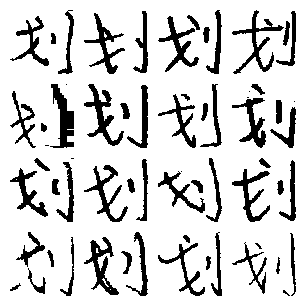 划划划划
划划划划
划划划划
划划划划